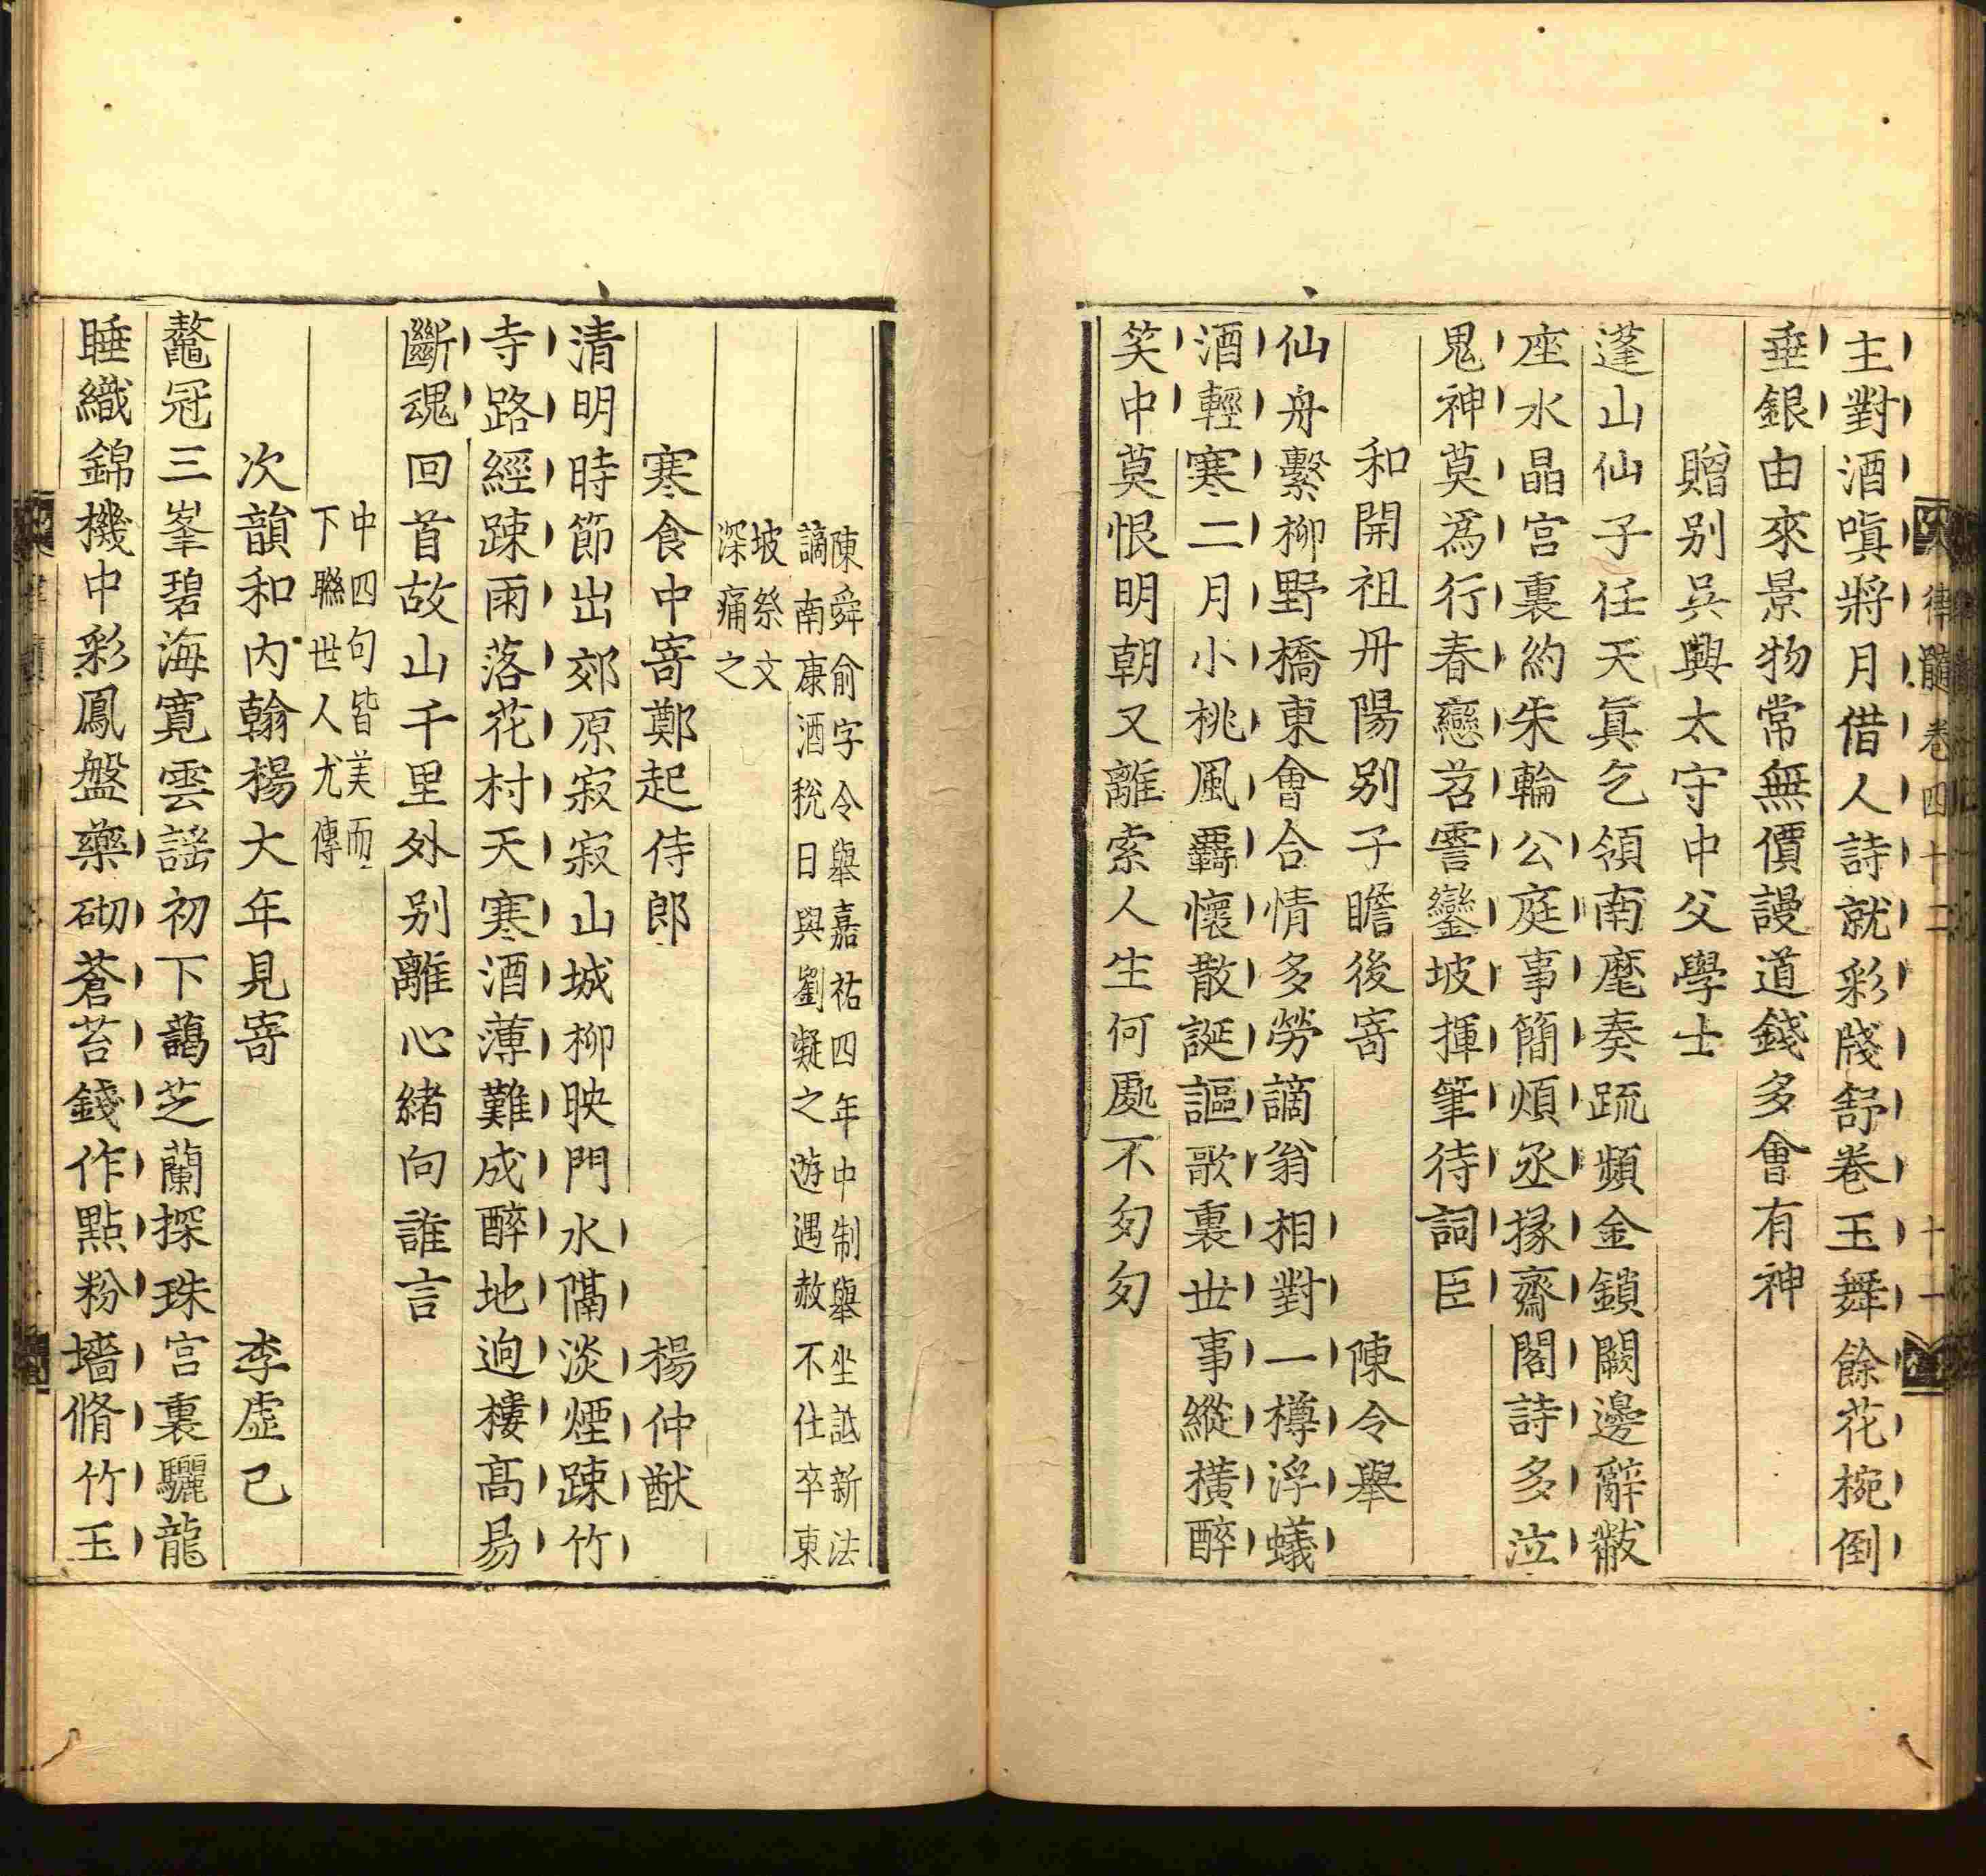 律髓卷四十二
十一
主對酒嗔將月借人詩就彩牋舒卷玉舞餘花椀倒
垂銀由來景物常無價謾道錢多會有神
贈別吳興太守中父學士
蓬山仙子任天眞乞領南麾奏疏頻金鎖闕邊辭黻
座水晶宮裏約朱輪公庭事簡煩丞掾齋閣詩多泣
鬼神莫爲行春戀苕霅鑾坡揮筆待詞臣
和開祖丹陽別子瞻後寄 陳令舉
仙舟繫柳野橋東會合情多勞謫翁相對一樽浮蟻
酒輕寒二月小桃風覊懷散誕謳歌裏世事縱橫醉
笑中莫恨明朝又離索人生何處不匆匆
陳舜俞字令舉嘉祐四年中制舉坐詆新法
謫南康酒稅日與劉凝之遊遇赦不仕卒東
坡祭文
深痛之
寒食中寄鄭起侍郎 楊仲猷
清明時節出郊原寂寂山城柳映門水隔淡煙踈竹
寺路經踈雨落花村天寒酒薄難成醉地逈樓高易
斷魂回首故山千里外別離心緒向誰言
中四句皆美而
下聯世人尤傳
次韻和內翰楊大年見寄 李虛己
鼇冠三峯碧海寬雲謠初下藹芝蘭探珠宮裏驪龍
睡織錦機中彩鳳盤藥砌蒼苔錢作點粉墻脩竹玉